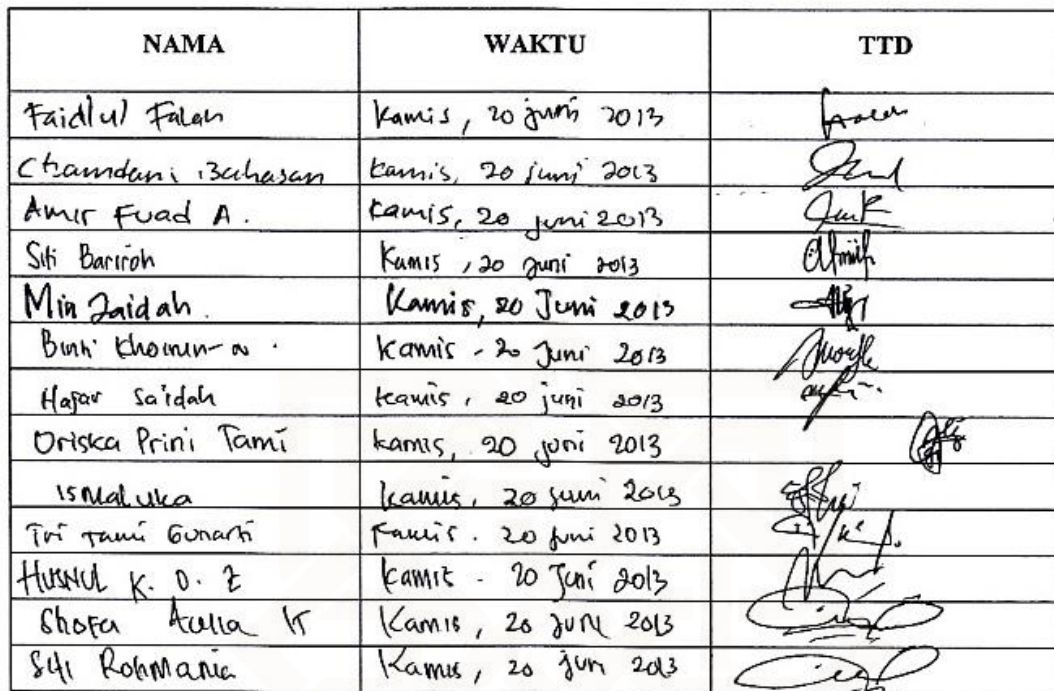 NAMA WAKTU TTD
Faidlul Falah Kamis, 20 juni 2013
Chamdani Bahasan Kamis, 20 juni 2013
Amir Fuad A. Kamis, 20 juni 2013
Siti Bariroh Kamis, 20 Juni 2013
Min Zaidah. Kamis, 20 Juni 2013
Kamis - 20 Juni 2013
Hajar Sa'idah Kamis, 20 juni 2013
Oriska Prini Tami Kamis, 20 juni 2013
Ismaluka Kamis, 20 juni 2013
Tri Tami Gunarti Kamis. 20 juni 2013
HUSNUL K. D. Z Kamis - 20 Juni 2013
Shofa Aulia K Kamis, 20 June 2013
Siti Rohmania Kamis, 20 jun 2013